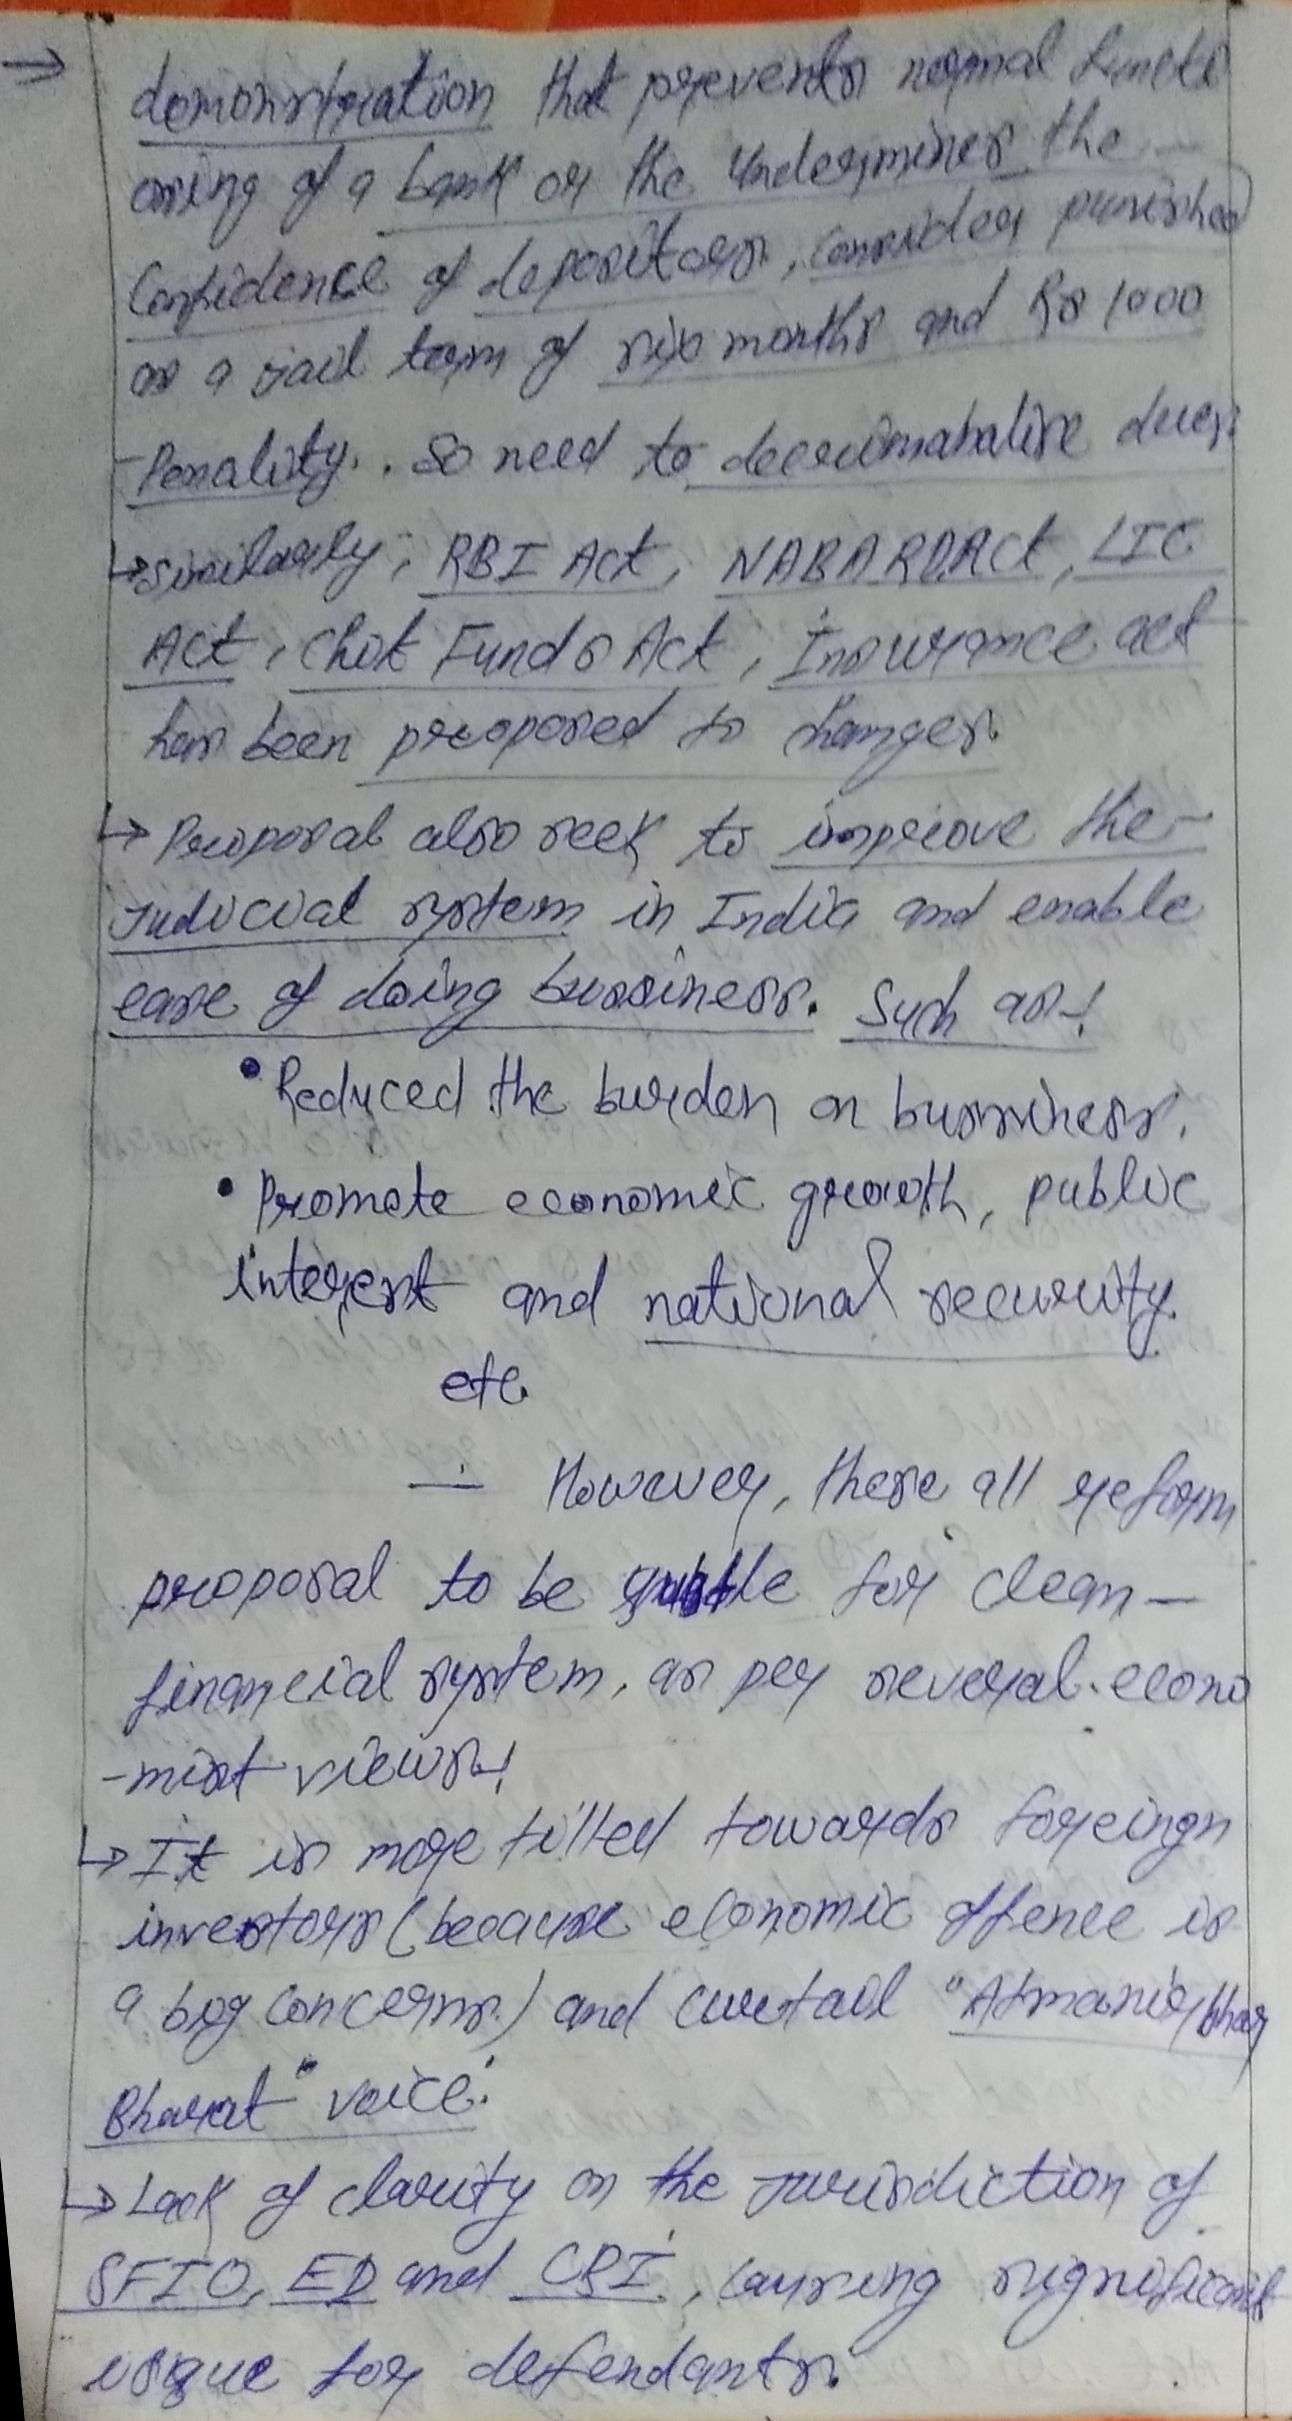 → demonstration that prevents normal functi
oning of a bank or the undermines the -
Confidence of depositors, consider punished
as a jail term of six months and Rs 1000
- Penality. So need to decriminalise dues.
↳ Similarly, RBI Act, NABARD Act, LIC
Act, Chit Funds Act, Insurance act
has been proposed to changes.
↳ Proposal also seek to improve the -
Judicial system in India and enable
ease of doing bussiness. Such as -!
• Reduced the burden on bussiness.
• Promote economic growth, public
interest and national security.
etc.
— However, these all reform
proposal to be for clean -
financial system, as per several econo
- mist views -!
↳ It is more tilted towards foreingn
investors (because economic offence is
a big concerns.) and curtail "Atmanirbhar
Bharat" voice.
↳ Lack of clarity on the jurisdiction of
SFIO, ED and CBI, causing significant
issue for defendants.